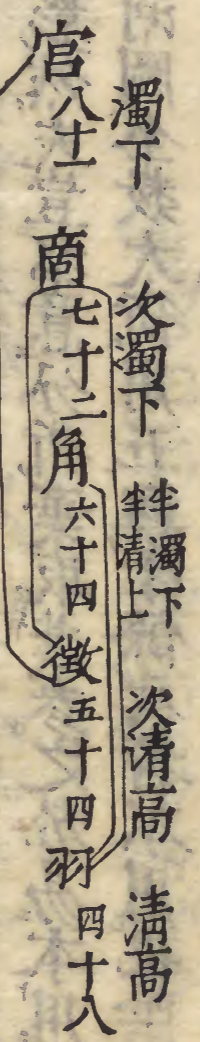 濁下
次濁下
半濁下
半清上
次清高
清高
宫八十一
商七十二角六十四徵五十四羽四十八